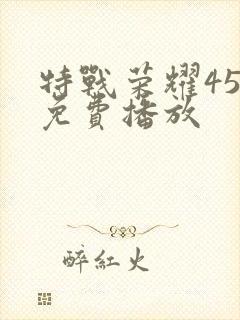 特戰荣耀45
免費播放
醉紅火